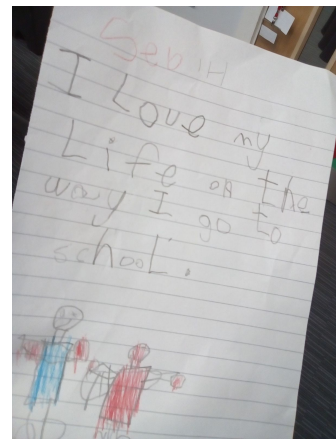 I Love my
Life on the
way I go to
school.